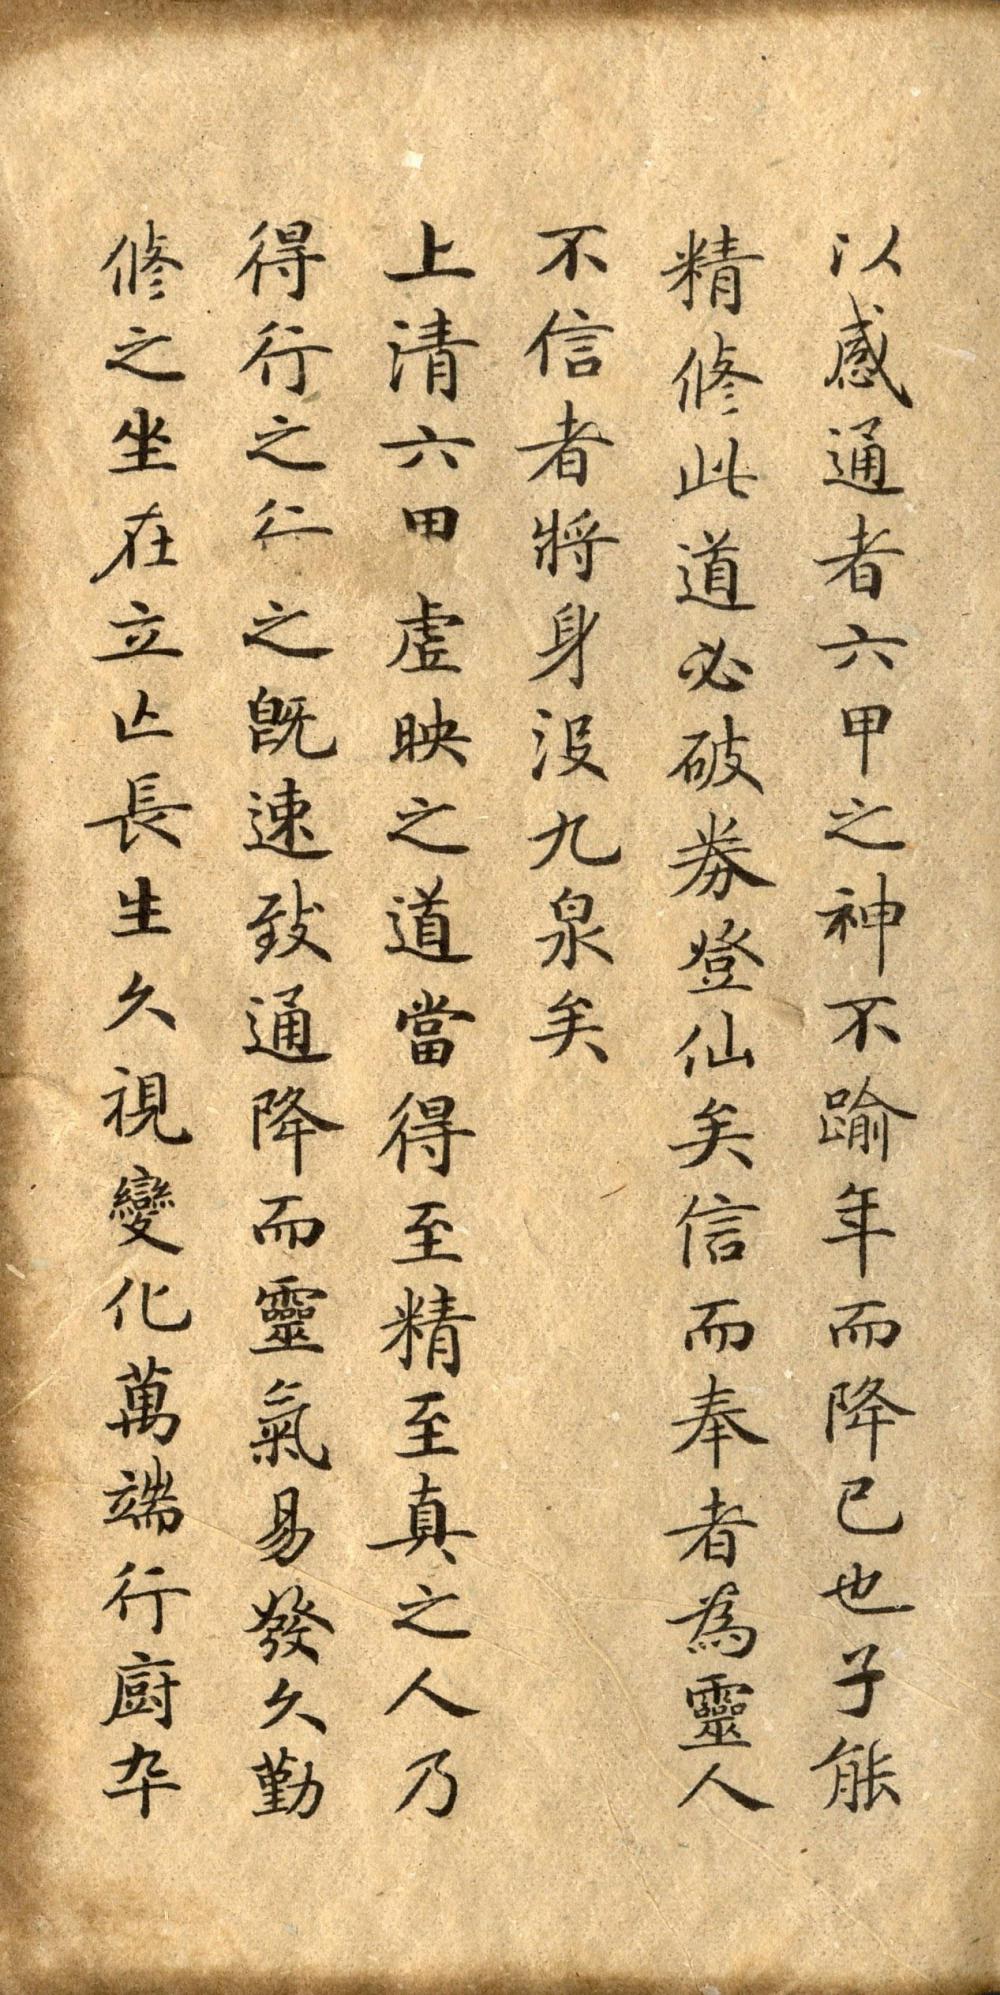 以感通者六甲之神不踰年而降已也子能
精脩此道必破券登仙矣信而奉者為靈人
不信者將身沒九泉矣
上清六甲虛映之道當得至精至真之人乃
得行之行之既速致通降而靈氣易發久勤
脩之坐在立亾長生久視變化萬端行廚卒